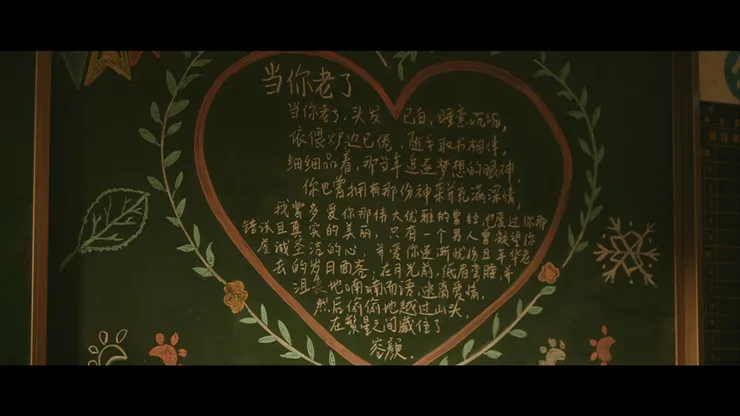 当你老了
当你老了，头发已白，睡意沉沉，
依偎炉边已倦，随手取书相伴，
细细品着，那当年追逐梦想的眼神，
你也曾拥有那份神采和充满深情，
我曾多爱你那伟大优雅的曾经，也爱过你那
错误且真实的美丽，只有一个男人曾
虔诚圣洁的心，并爱你逐渐忧伤且年华老
去的岁月面容；在月光前，低眉弯腰，并
沮丧地喃喃而语，逃离爱情，
然后偷偷地越过山头，
在繁星之间藏住了
容颜。